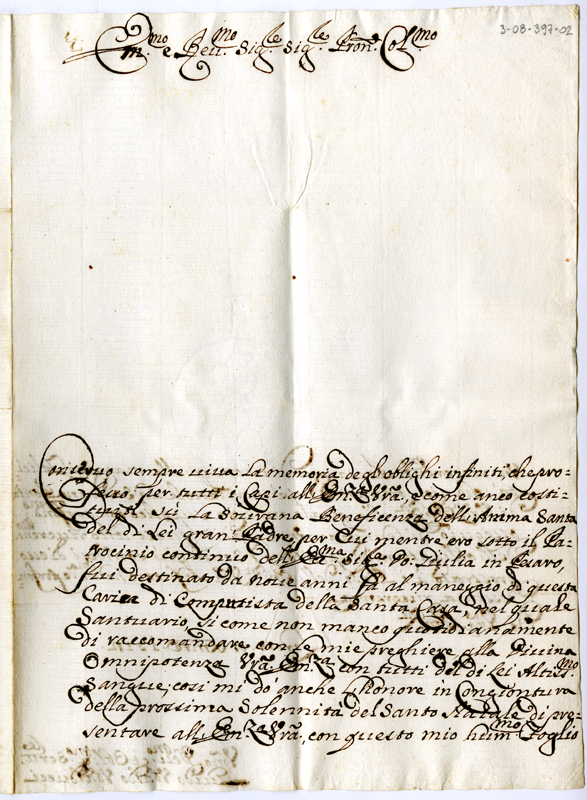 3-08-397-02
Em.mo e Reu.mo Sig.le Sig.le Pron. Col.mo
Conseruo sempre uiua la memoria de gl'oblighi infiniti, che pro-
fesso per tutti i Capi all' Em.za V'ra. e come anco costi-
su la Sourana Beneficenza dell' Anima Santa
del di Lei gran Padre, per cui mentre ero sotto il Pa-
trocinio continuo dell' Sig.le in Pesaro,
fui destinato da noue anni fà al maneggio di questa
Carica di Computista della Santa Casa, nel quale
Santuario, si come non manco quotidianamente
di raccomandare con le mie preghiere alla Diuina
Omnipotenza V'ra. Em.za con tutti del di Lei Altiss.mo
Sangue; cosi mi dò anche l'honore in congiontura
della prossima Solennità del Santo Natale di pre-
sentare all' Em.za V'ra, con questo mio hum.mo Foglio